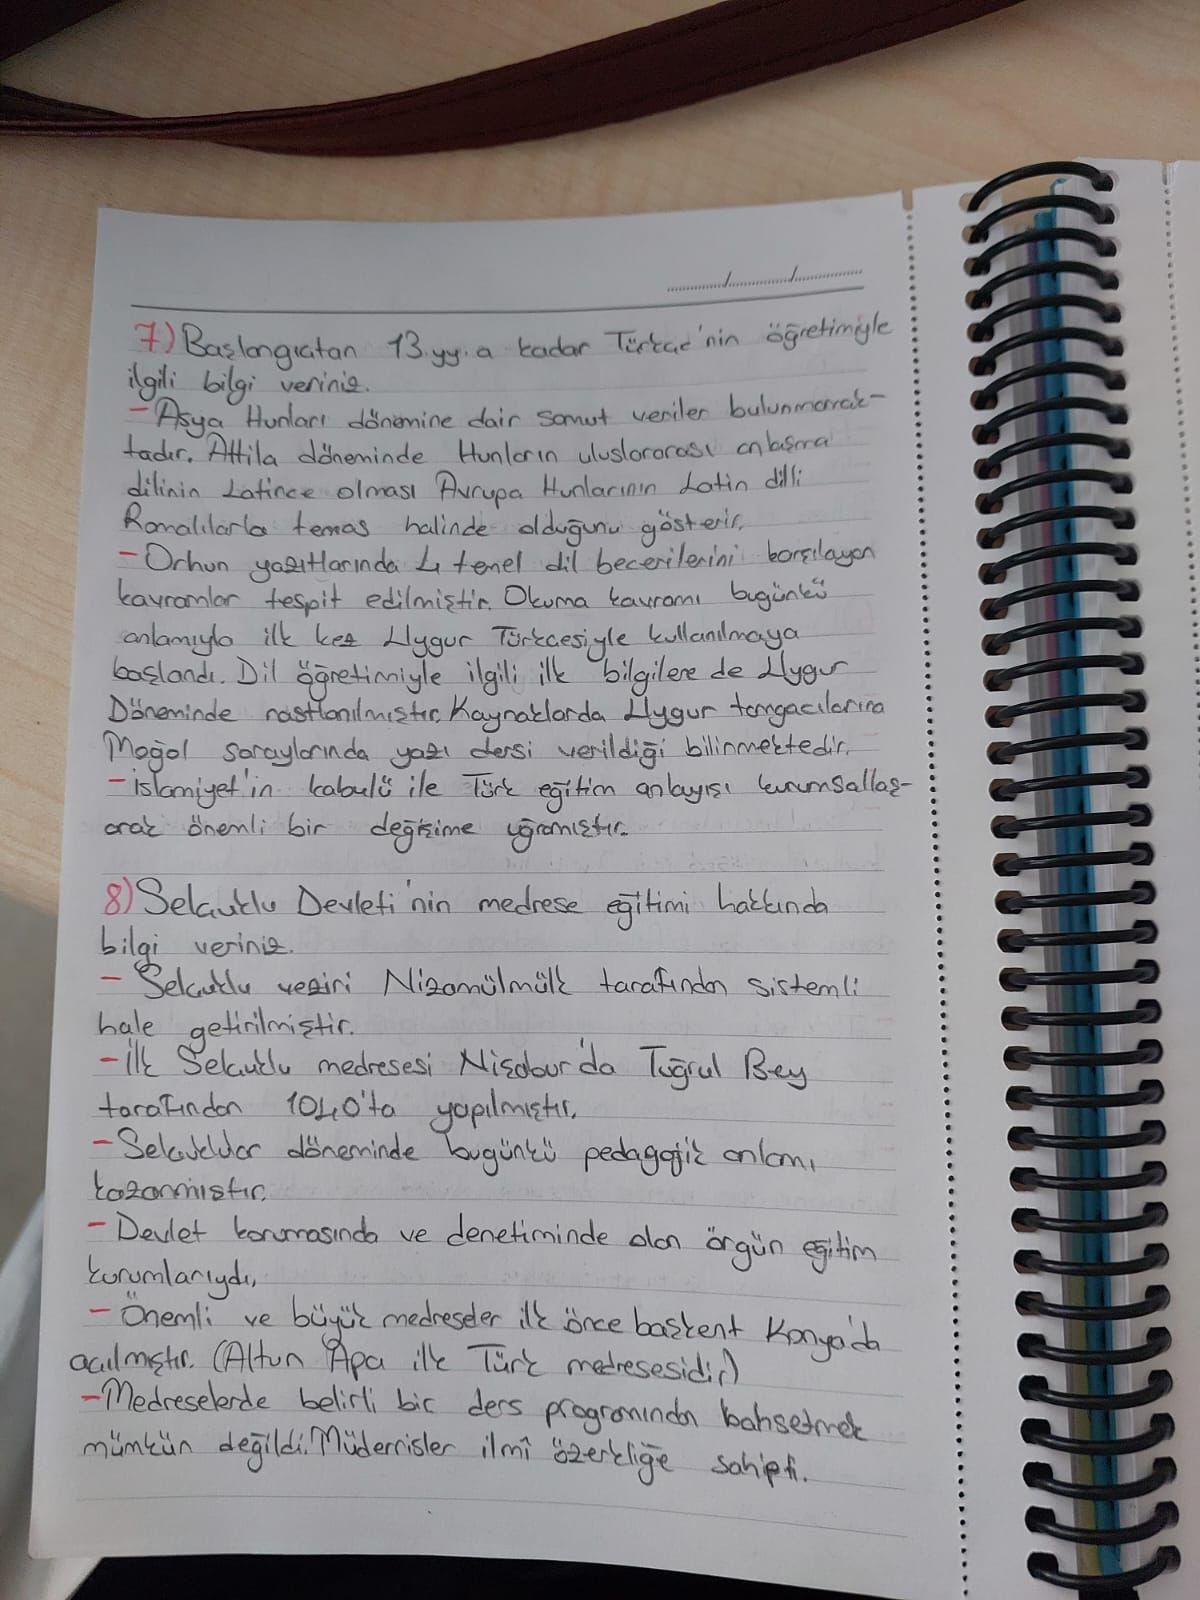 ....../....../......
7) Başlangıçtan 13.yy.a kadar Türkçe'nin öğretimiyle
ilgili bilgi veriniz.
- Asya Hunları dönemine dair somut veriler bulunmamak-
tadır. Attila döneminde Hunların uluslararası anlaşma
dilinin Latince olması Avrupa Hunlarının Latin dilli
Romalılarla temas halinde olduğunu gösterir.
- Orhun yazıtlarında 4 temel dil becerilerini karşılayan
kavramlar tespit edilmiştir. Okuma kavramı bugünkü
anlamıyla ilk kez Uygur Türkçesiyle kullanılmaya
başlandı. Dil öğretimiyle ilgili ilk bilgilere de Uygur
Döneminde rastlanılmıştır. Kaynaklarda Uygur tamgacılarına
Moğol saraylarında yazı dersi verildiği bilinmektedir.
- İslamiyet'in kabulü ile Türk eğitim anlayışı kurumsallaş-
arak önemli bir değişime uğramıştır.
8) Selçuklu Devleti'nin medrese eğitimi hakkında
bilgi veriniz.
- Selçuklu veziri Nizamülmülk tarafından sistemli
hale getirilmiştir.
- İlk Selçuklu medresesi Nişabur'da Tuğrul Bey
tarafından 1040'ta yapılmıştır.
- Selçuklular döneminde bugünkü pedagojik anlamı
kazanmıştır.
- Devlet korumasında ve denetiminde olan örgün eğitim
kurumlarıydı.
- Önemli ve büyük medreseler ilk önce başkent Konya'da
açılmıştır. (Altun Apa ilk Türk medresesidir)
- Medreselerde belirli bir ders programından bahsetmek
mümkün değildi. Müderrisler ilmî özerkliğe sahipti.